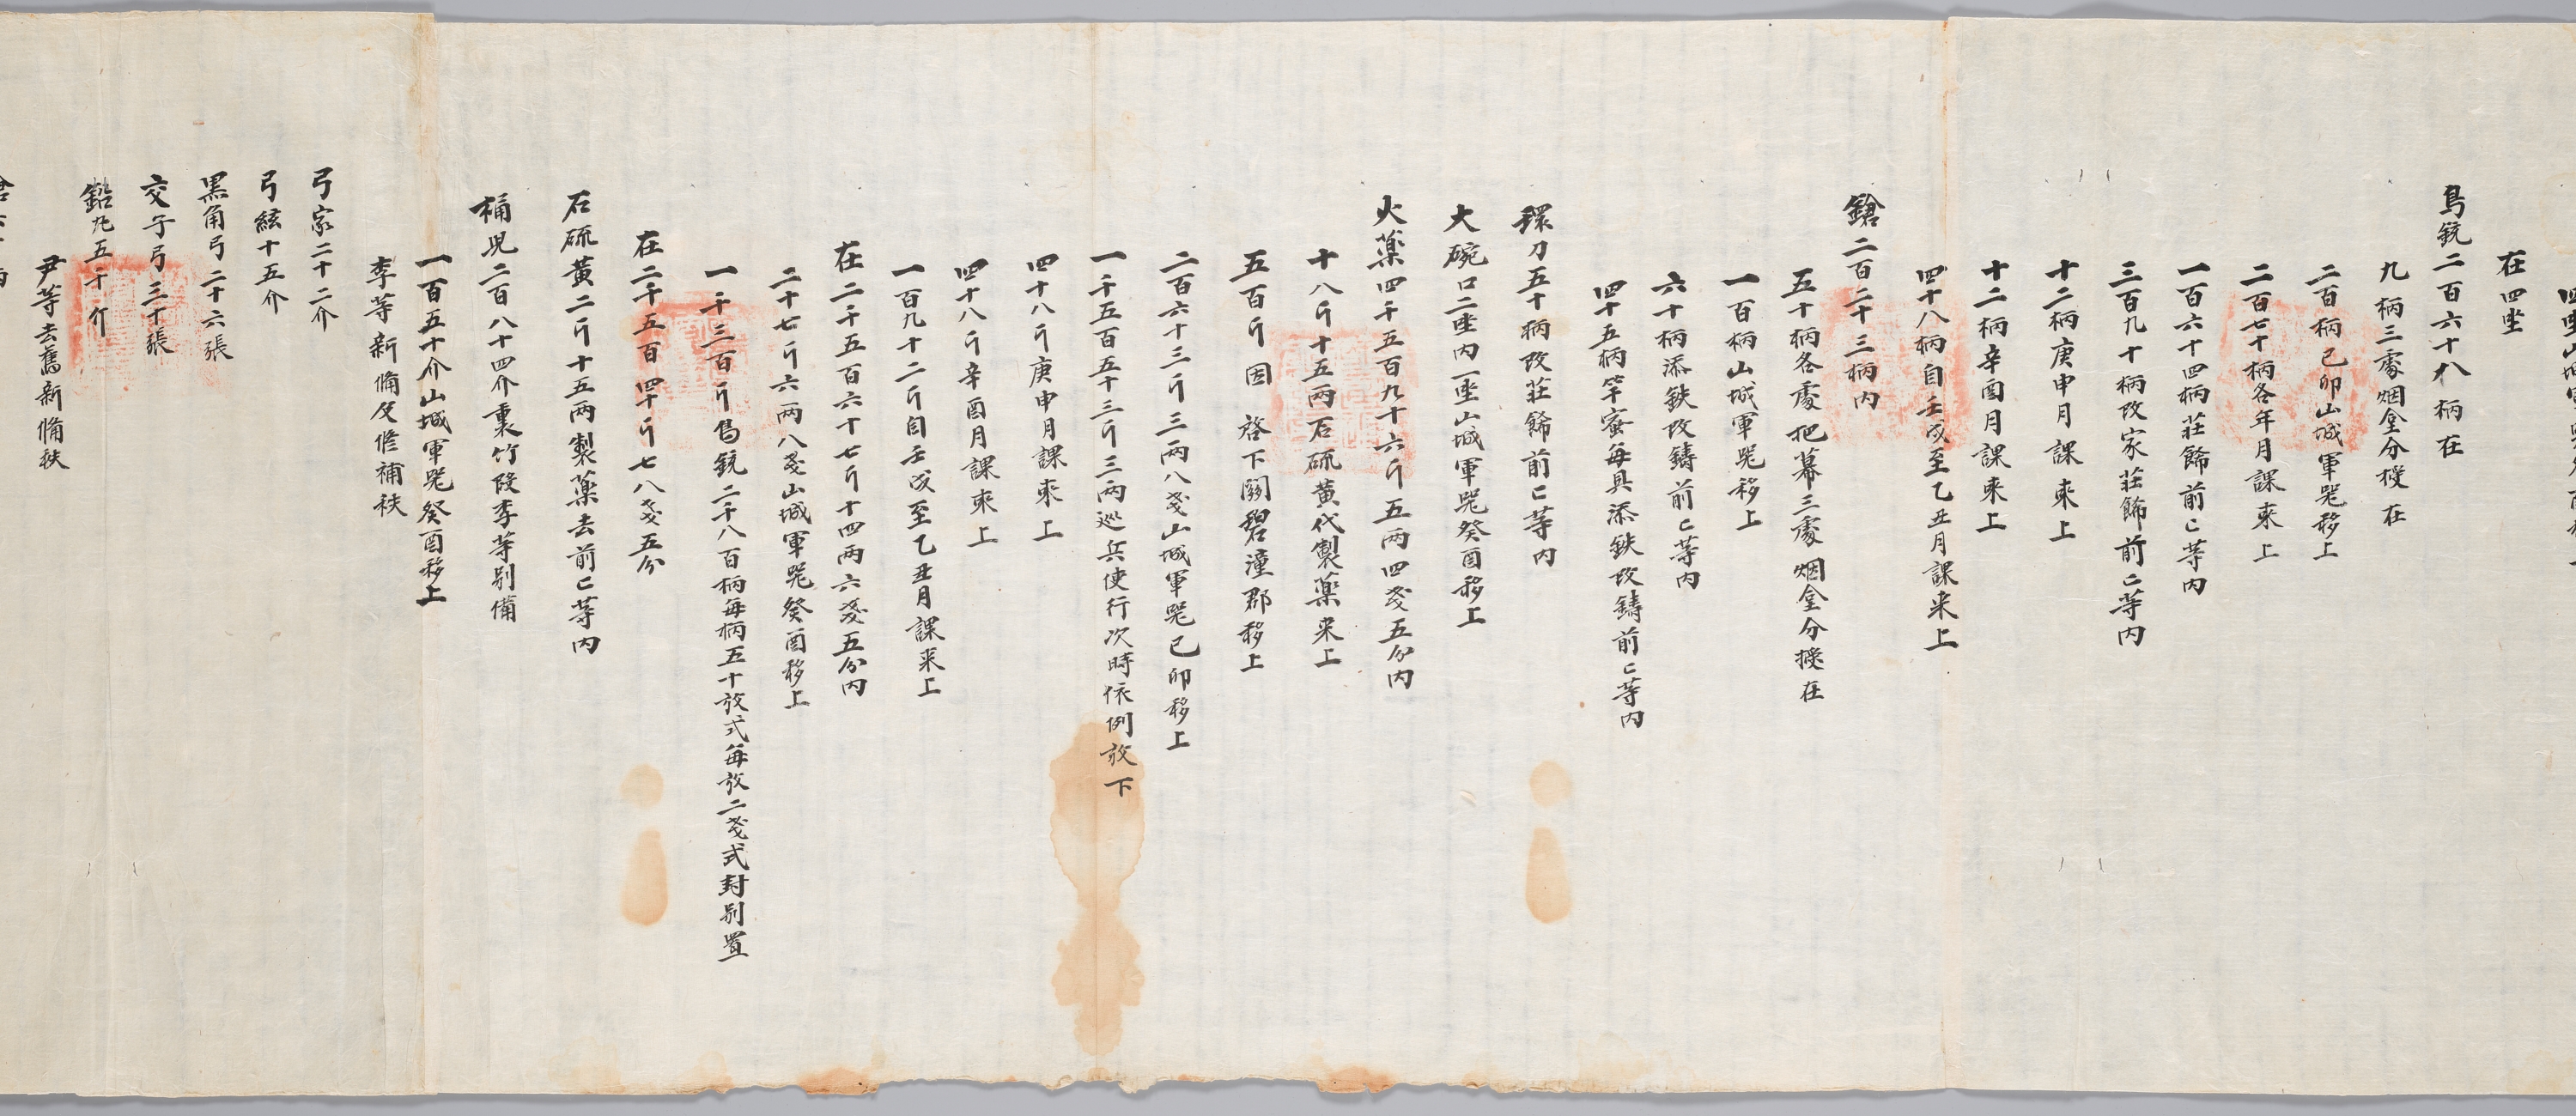 在四坐
鳥銃二百六十八柄在
九柄三處烟臺分授在
二百柄己卯山城軍器移上
二百七十柄各年月課來上
一百六十四柄莊餙前已等內
三百九十柄改家莊餙前已等內
十二柄庚申月課來上
十二柄辛酉月課來上
四十八柄自壬戌至乙丑月課來上
鎗二百二十三柄內
五十柄各處把幕三處烟臺分授在
一百柄山城軍器移上
六十柄添鉄改鑄前已等內
四十五柄竿蜜每具添鉄改鑄前已等內
環刀五十柄改莊餙前已等內
大碗口二坐內一坐山城軍器癸酉移上
火藥四千五百九十六斤五兩四戔五分內
十八斤十五兩石硫黃代製藥来上
五百斤因 啓下關碧潼郡移上
二百六十三斤三兩八戔山城軍器己卯移上
一千五百五十三斤三兩巡兵使行次時依例放下
四十八斤庚申月課来上
四十八斤辛酉月課来上
一百九十二斤自壬戌至乙丑月課来上
在二千五百六十七斤十四兩六戔五分內
二十七斤六兩八戔山城軍器癸酉移上
一千三百斤鳥銃二千八百柄每柄五十放式每放二戔式封別置
在二千五百四十斤七八戔五分
石硫黃二斤十五兩製藥去前已等內
桶児二百八十四介裏竹改李等別備
一百五十介山城軍器癸酉移上
李等新備及修補秩
弓家二十二介
弓絃十五介
黑角弓二十六張
交子弓三十張
鉛丸五千介
尹等去舊新備秩